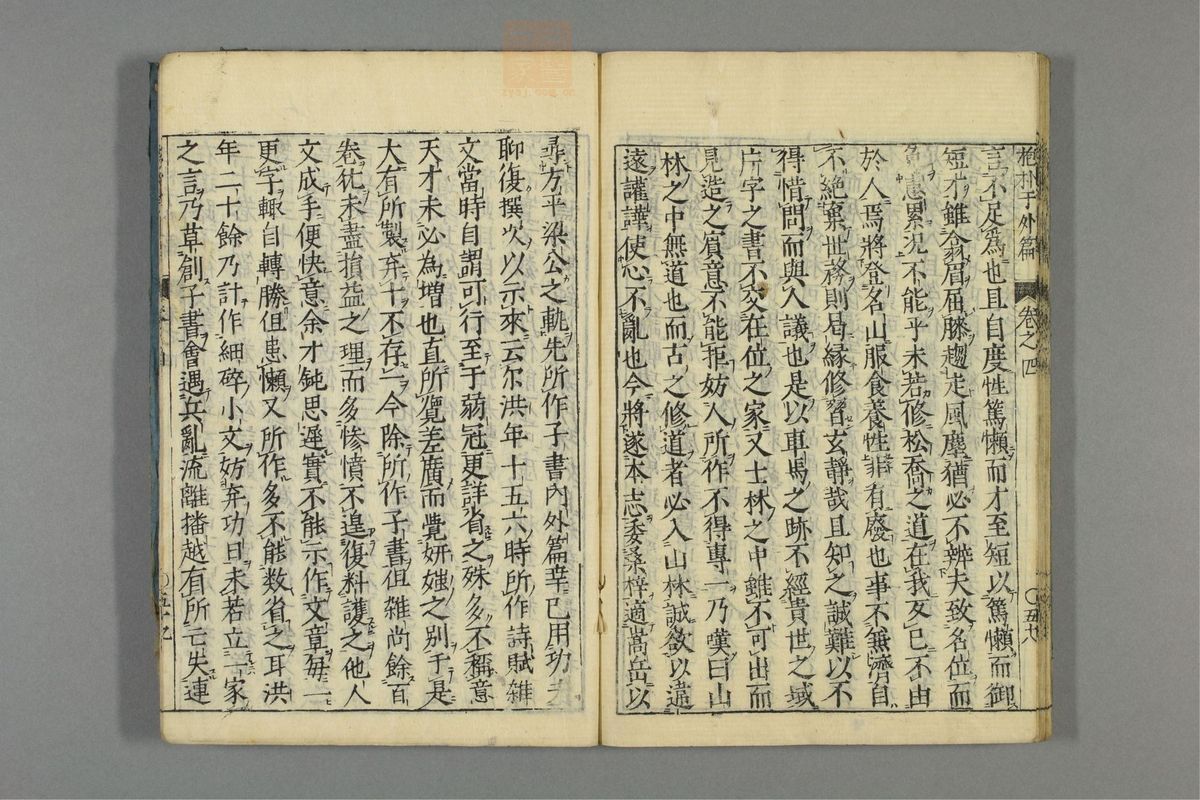 抱朴子外篇 卷之四 〇五十八
言不足為也且自度性篤懶而才至短以篤懶而御
短才雖翕眉屈膝趨走風塵猶必不辨夫致名位而
免患累況不能乎未若修松喬之道在我而已不由
於人焉將登名山服食養性非有廢也事不無濟自
不絕棄世務則曷緣修習玄靜哉且知之誠難以不
得惜問而與人議也是以車馬之跡不經貴世之域
片字之書不交在位之家又士林之中雖不可出而
見造之賓意不能拒妨人所作不得專一乃嘆曰山
林之中無道也而古之修道者必入山林誠欲以違
遠讙譁使心不亂也今將遂本志委桑梓適嵩岳以
尋方平梁公之軌先所作子書內外篇幸已用功夫
聊復撰次以示來云尔洪年十五六時所作詩賦雜
文當時自謂可行至于弱冠更詳省之殊多不稱意
天才未必為增也直所覽差廣而覺妍媸之別于是
大有所製弃十不存一今除所作子書但雜尚餘百
卷犹未盡損益之理而多慘憤不遑復料護之他人
文成手便快意余才鈍思遲實不能示作文章每一
更字輙自轉勝但患懶又所作多不能数省之耳洪
年二十餘乃計作細碎小文妨弃功日未若立一家
之言乃草創子書會遇兵亂流離播越有所亡失連